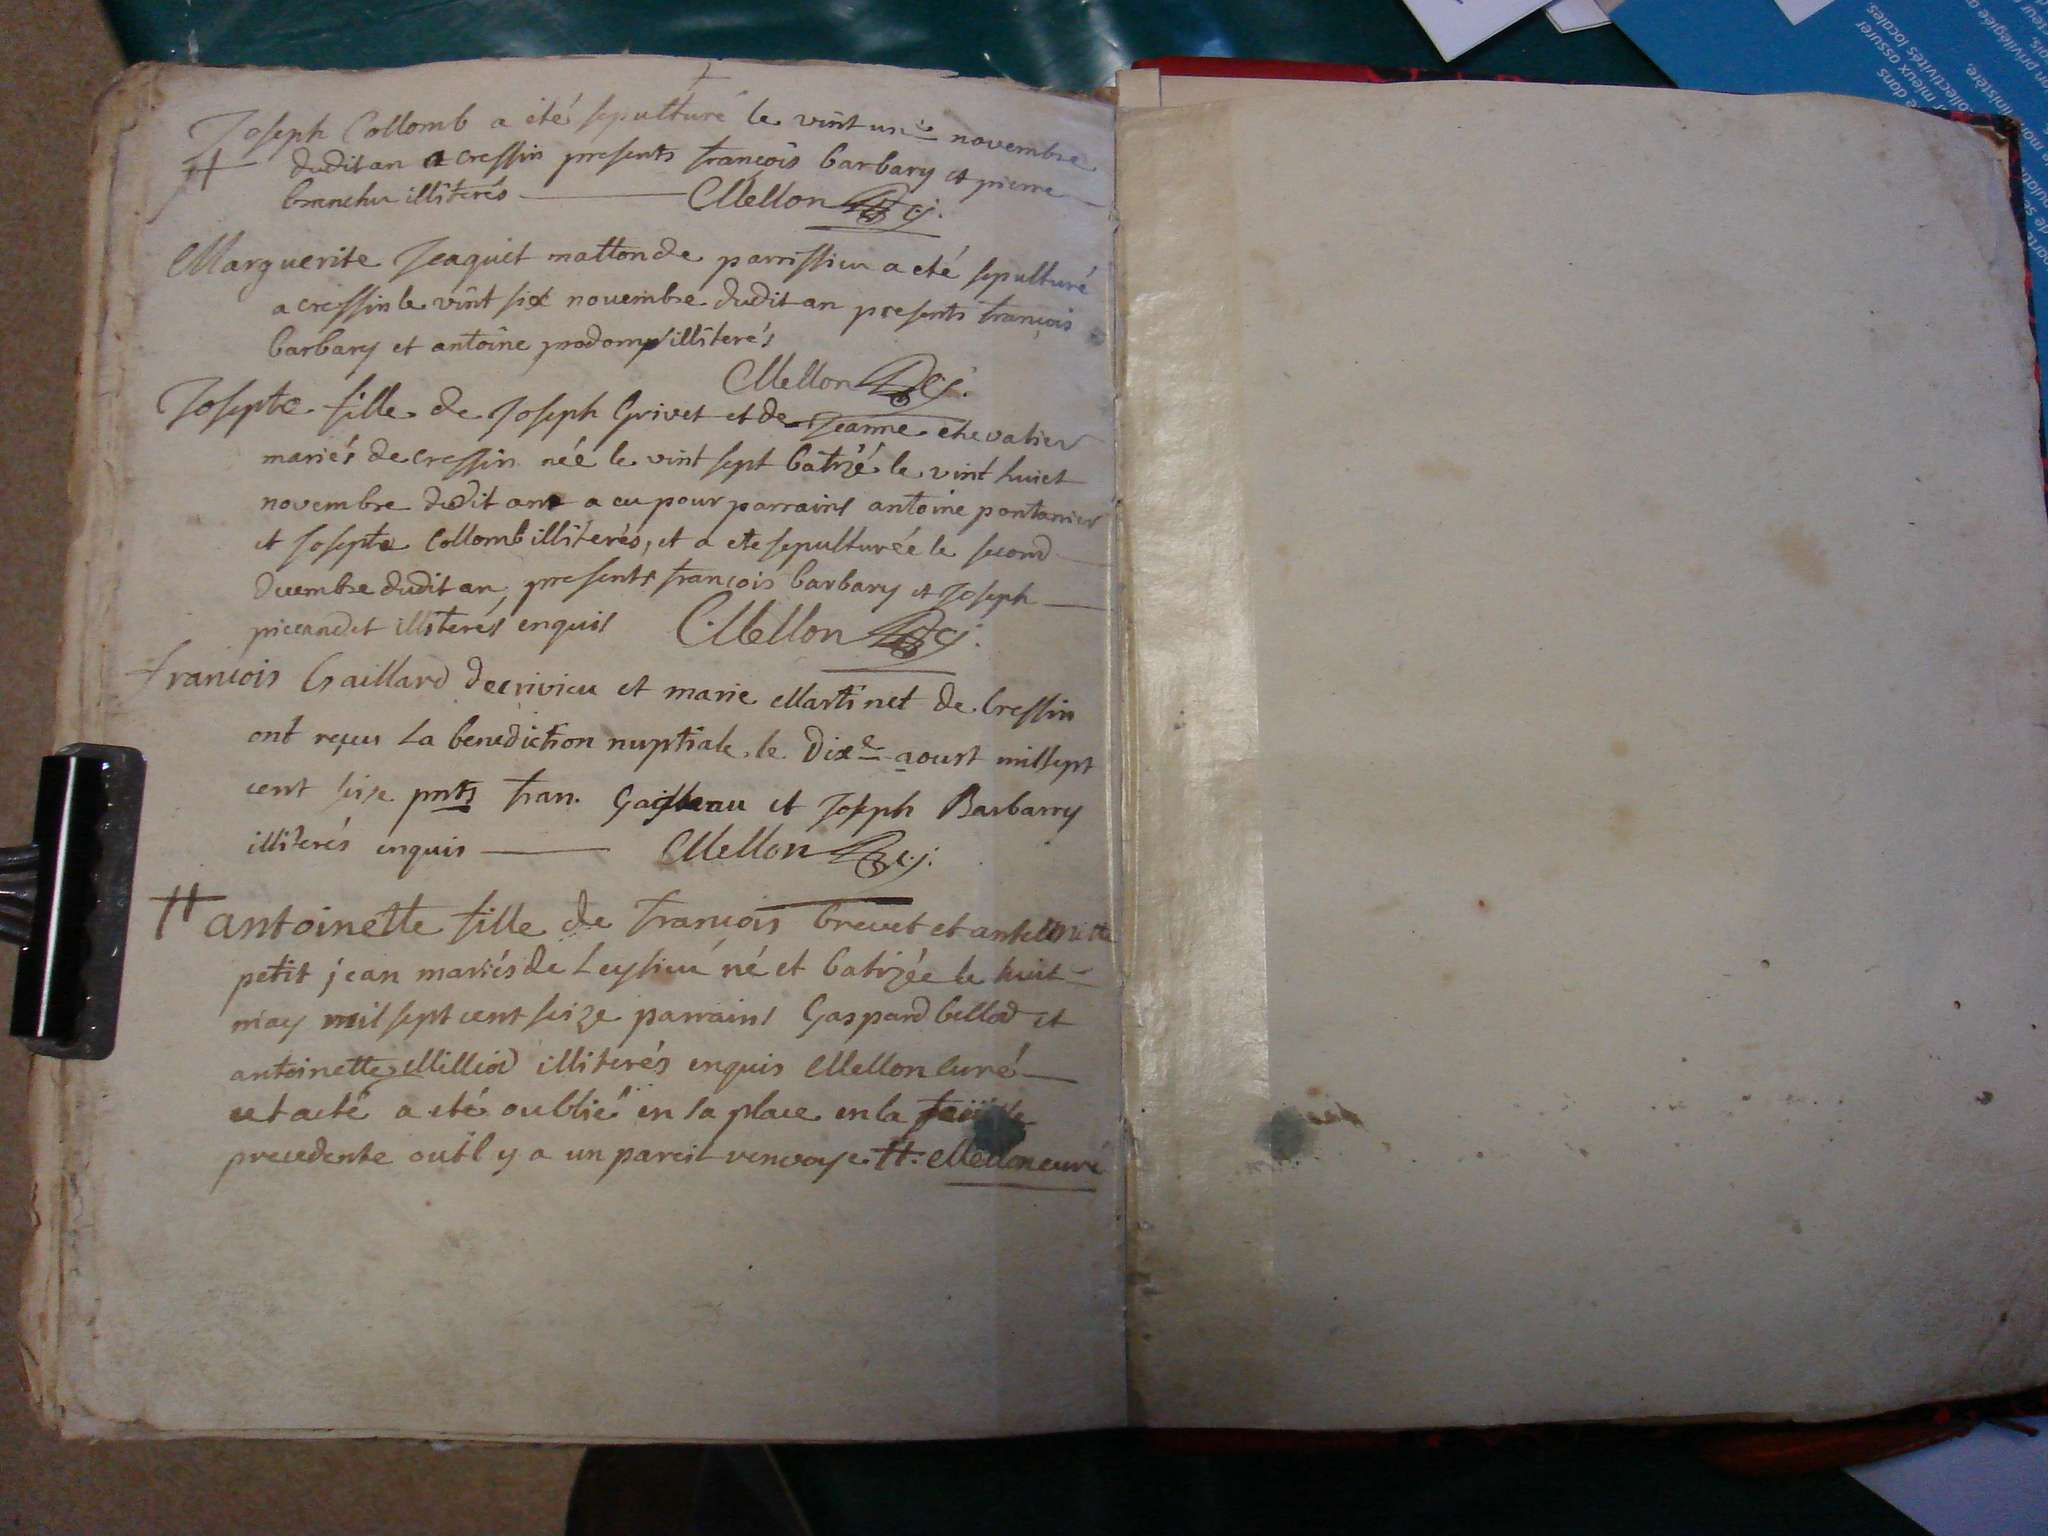 Joseph Collomb a eté sepulturé le vint un.e novembre
dudit an a cressin presents françois barbary et pierre
branchu illiterés Mellon Rcj.
Marguerite Jeaquet matton de parrissieu a eté sepulturé
a cressin le vint six novembre dudit an presents françois
barbary et antoine prodomp illiterés
Mellon Rcj.
Josepte fille de Joseph Grivet et de Jeanne chevalier
mariés de cressin néé le vint sept batizé le vint huict
novembre dudit an a eu pour parrains antoine pontanier
et Josepte Collomb illiterés, et a ete sepulturéé le second
decembre dudit an, presents françois barbary et Joseph
piccandet illiterés enquis Mellon Rcj.
françois Gaillard de crivieu et marie Martinet de Cressin
ont reçeu La benediction nuptiale le Dixe aoust mil sept
cent seize pnts fran. et Joseph Barbarry
illiterés enquis Mellon Rcj.
# antoinette fille de françois brevet et
petit jean mariés de Leysieu né et batizée le huit
may mil sept cent seize parrains Gaspard billod et
antoinette Milliod illiterés enquis Mellon curé
cet acte a eté oublié en sa place en la feüille
precedente ou il y a un pareil renvoye #. Mellon curé
donc
mieux assurer
ollectivités locales.
ministère,
on privilégiée